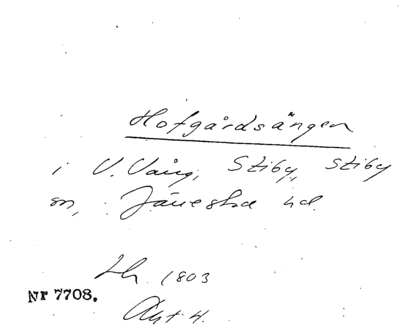 Hofgårdsängen
i V. Vång, Stiby, Stiby
sn, Järrestad hd.
Lh. 1803
Nr 7708.
Akt 4.